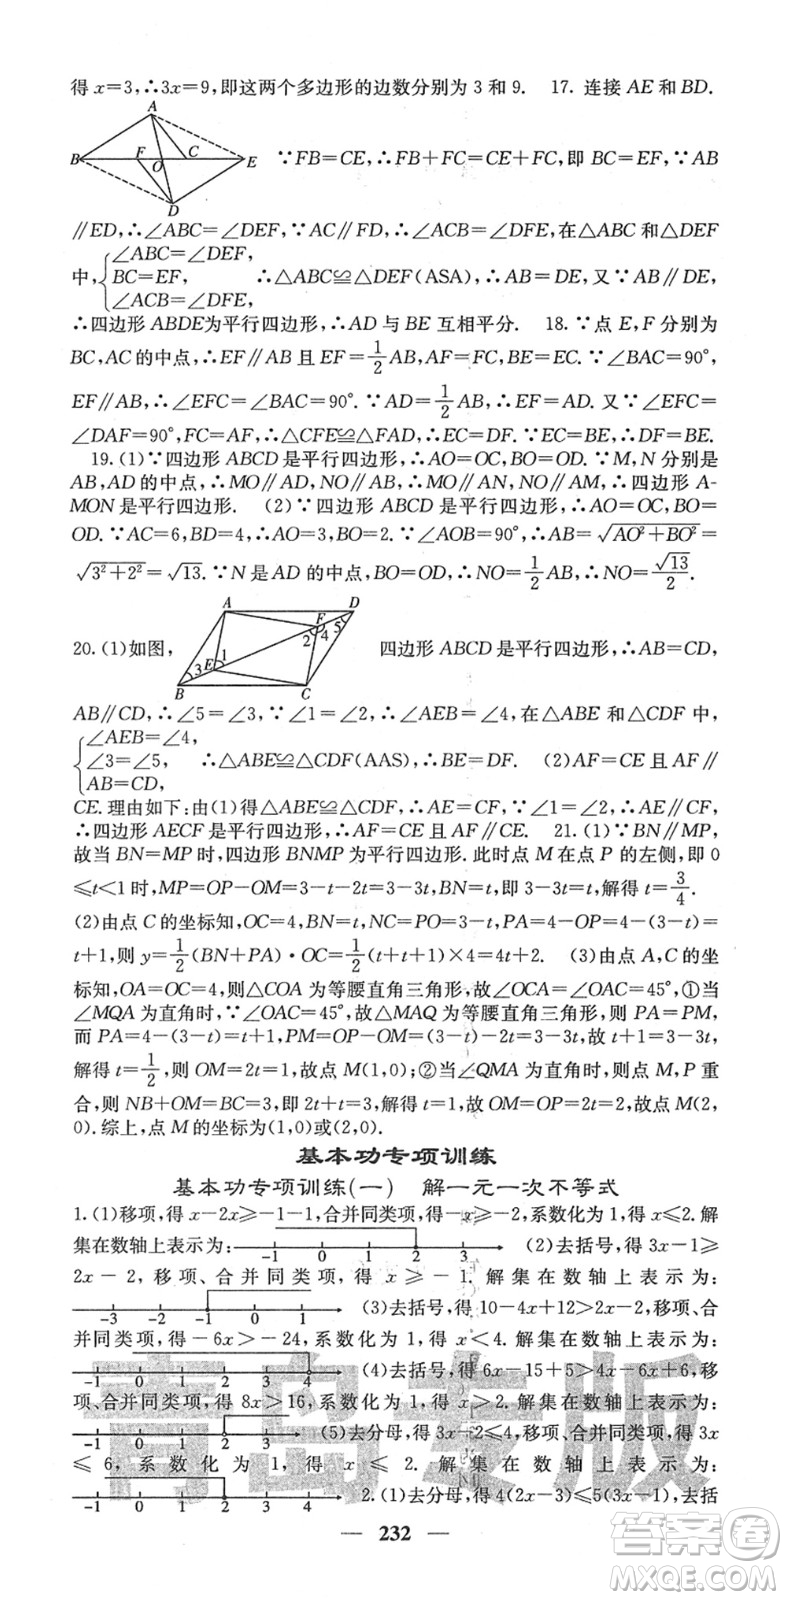 得 x=3,∴3x=9,即这两个多边形的边数分别为 3 和 9. 17. 连接 AE 和 BD.
A
B F C E
O
D
∵FB=CE,∴FB+FC=CE+FC,即 BC=EF,∵AB
∥ED,∴∠ABC=∠DEF,∵AC∥FD,∴∠ACB=∠DFE,在△ABC 和△DEF
中,{∠ABC=∠DEF,
BC=EF,
∠ACB=∠DFE,
∴△ABC≌△DEF(ASA),∴AB=DE,又∵AB∥DE,
∴四边形 ABDE为平行四边形,∴AD 与 BE 互相平分. 18. ∵点 E,F 分别为
BC,AC 的中点,∴EF∥AB 且 EF=1/2 AB,AF=FC,BE=EC. ∵∠BAC=90°,
EF∥AB,∴∠EFC=∠BAC=90°. ∵AD=1/2 AB,∴EF=AD. 又∵∠EFC=
∠DAF=90°,FC=AF,∴△CFE≌△FAD,∴EC=DF. ∵EC=BE,∴DF=BE.
19. (1)∵四边形 ABCD 是平行四边形,∴AO=OC,BO=OD. ∵M, N 分别是
AB,AD 的中点,∴MO∥AD,NO∥AB,∴MO∥AN,NO∥AM,∴四边形 A-
MON 是平行四边形. (2)∵四边形 ABCD 是平行四边形,∴AO=OC,BO=
OD. ∵AC=6,BD=4,∴AO=3,BO=2. ∵∠AOB=90°,∴AB=√(AO²+BO²)=
√(3²+2²)=√13. ∵N 是 AD 的中点,BO=OD,∴NO=1/2 AB,∴NO=√13/2.
20. (1)如图,
A D
F
2 4 5
3 E 1
B C
四边形 ABCD 是平行四边形,∴AB=CD,
AB∥CD,∴∠5=∠3,∵∠1=∠2,∴∠AEB=∠4,在△ABE 和△CDF 中,
{∠AEB=∠4,
∠3=∠5,
AB=CD,
∴△ABE≌△CDF(AAS),∴BE=DF. (2)AF=CE 且 AF∥
CE. 理由如下:由(1)得△ABE≌△CDF,∴AE=CF,∵∠1=∠2,∴AE∥CF,
∴四边形 AECF 是平行四边形,∴AF=CE 且 AF∥CE. 21. (1)∵BN∥MP,
故当 BN=MP 时,四边形 BNMP 为平行四边形. 此时点 M 在点 P 的左侧,即 0
≤t<1 时,MP=OP-OM=3-t-2t=3-3t,BN=t,即 3-3t=t,解得 t=3/4.
(2)由点 C 的坐标知,OC=4,BN=t,NC=PO=3-t,PA=4-OP=4-(3-t)=
t+1,则 y=1/2(BN+PA)·OC=1/2(t+t+1)×4=4t+2. (3)由点 A,C 的坐
标知,OA=OC=4,则△COA 为等腰直角三角形,故∠OCA=∠OAC=45°,①当
∠MQA 为直角时,∵∠OAC=45°,故△MAQ 为等腰直角三角形,则 PA=PM,
而 PA=4-(3-t)=t+1,PM=OP-OM=(3-t)-2t=3-3t,故 t+1=3-3t,
解得 t=1/2,则 OM=2t=1,故点 M(1,0);②当∠QMA 为直角时,则点 M,P 重
合,则 NB+OM=BC=3,即 2t+t=3,解得 t=1,故 OM=OP=2t=2,故点 M(2,
0). 综上,点 M 的坐标为(1,0)或(2,0).
基本功专项训练
基本功专项训练(一) 解一元一次不等式
1. (1)移项,得 x-2x≥-1-1,合并同类项,得-x≥-2,系数化为 1,得 x≤2. 解
集在数轴上表示为: -1 0 1 2 3 (2)去括号,得 3x-1≥
2x-2,移项、合并同类项,得 x≥-1. 解集在数轴上表示为:
-3 -2 -1 0 1 (3)去括号,得 10-4x+12>2x-2,移项、合
并同类项,得-6x>-24,系数化为 1,得 x<4. 解集在数轴上表示为:
-1 0 1 2 3 4 (4)去括号,得 6x-15+5>4x-6x+6,移
项、合并同类项,得 8x>16,系数化为 1,得 x>2. 解集在数轴上表示为:
-1 0 1 2 3 4 (5)去分母,得 3x-2≤4,移项、合并同类项,得 3x
≤6,系数化为 1,得 x≤2. 解集在数轴上表示为:
-1 0 1 2 3 4 2. (1)去分母,得 4(2x-3)≤5(3x-1),去括
— 232 —
青岛专版
答案圈
MXQE.COM